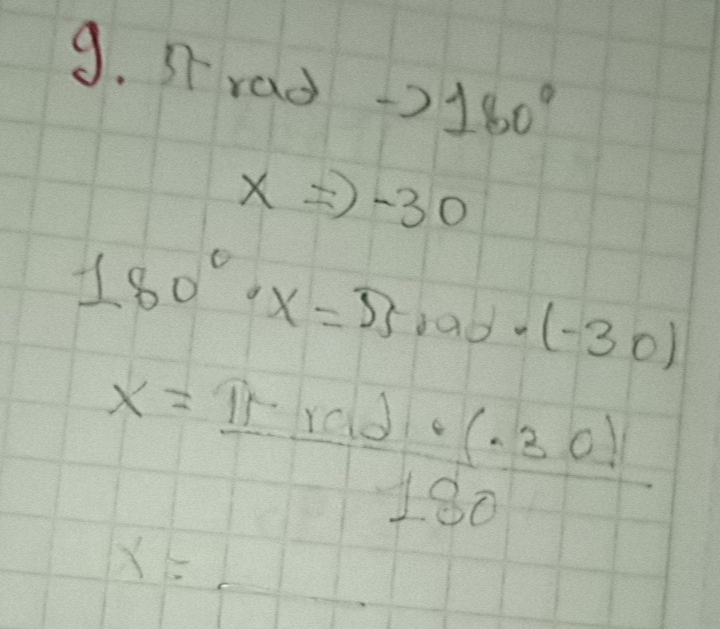 9. π rad -> 180°
x => -30
180° · x = π rad · (-30)
x = π rad · (-30)
180
x = _